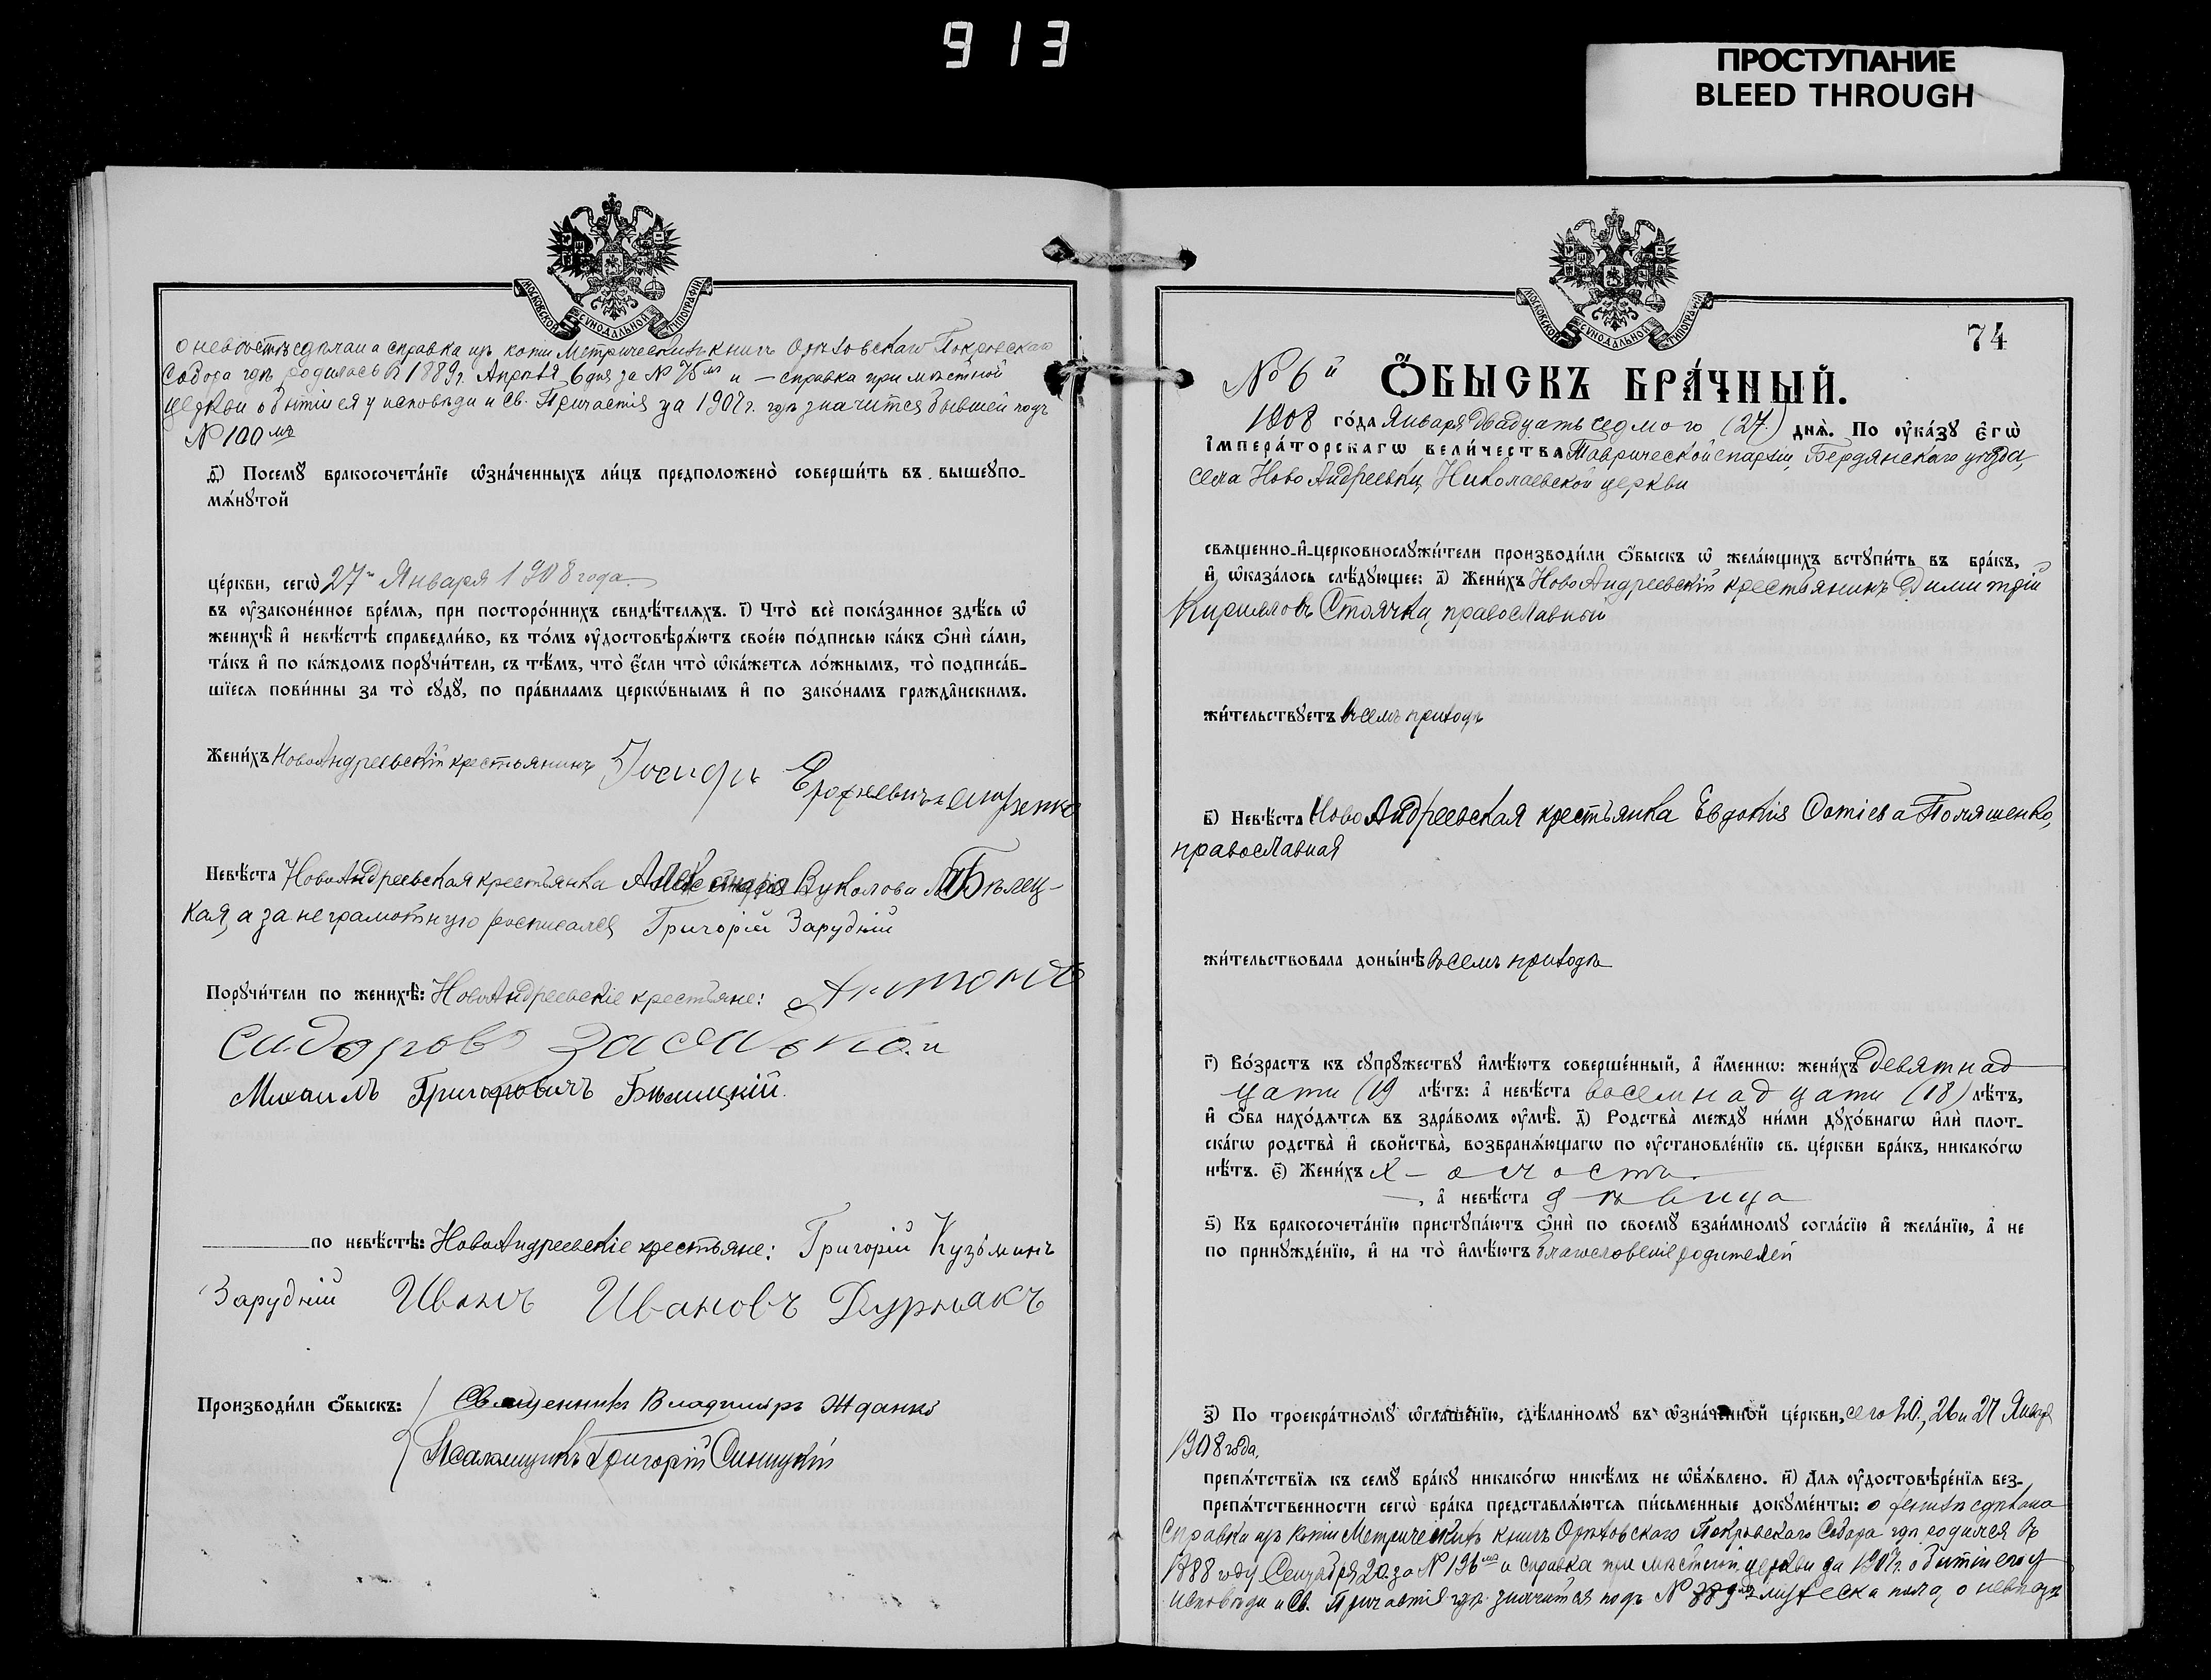 913
ПРОСТУПАНИЕ
BLEED THROUGH
МОСКОВСКОЙ СѴНОДАЛЬНОЙ ТИПОГРАФІИ
о невѣстѣ сдѣлана справка изъ копіи Метрическихъ книгъ Орѣховскаго Покровскаго
Собора гдѣ родилась въ 1889 г. Апрѣля 6 дня за № 76мъ и — справка при мѣстной
церкви о бытіи ея у исповѣди и Св. Причастія за 1907 г. гдѣ значится бывшей подъ
№ 100мъ
д҃) Посемꙋ̀ бракосочета́нїе ѡ҆зна́ченныхъ ли́цъ предположено̀ соверши́ть въ вышеꙋпо-
мѧ́нꙋтой
це́ркви, сегѡ̀ 27го Января 1908 года.
въ ᲂу҆зако́ненное вре́мѧ, при посторо́ннихъ свидѣ́телѧхъ. і҃) Что̀ всѐ пока́занное здѣ́сь ѡ҆
женихѣ̀ и҆ невѣ́стѣ справедли́во, въ то́мъ ᲂу҆достовѣрѧ́ютъ свое́ю по́дписью ка́къ ѻ҆нѝ са́ми,
та́къ и҆ по ка́ждомъ порꙋчи́тели, съ тѣ́мъ, что̀ є҆́сли что̀ ѡ҆ка́жется ло́жнымъ, то̀ подписа́в-
шїесѧ пови́нны за то̀ сꙋдꙋ̀, по пра́виламъ церкѡ́внымъ и҆ по зако́намъ гражда́нскимъ.
Жени́хъ НовоАндреевскій крестьянинъ Іосифъ
Ерофеевичъ
Невѣ́ста НовоАндреевская крестьянка Вуколова Бѣлец-
кая, а за неграмотную росписался Григорій Зарудній
Порꙋчи́тели по женихѣ̀: НовоАндреевскіе крестьяне: Антонъ
Сидоровъ Засалько. и
Михаилъ Григоровичъ Бѣлицкій.
по невѣ́стѣ: НовоАндреевскіе крестьяне: Григорій Кузьминъ
Зарудній Иванъ Ивановъ Дурнякъ
Производи́ли ѻ҆́быскъ: Священникъ Владиміръ Жданко
Псаломщикъ Григорій Синицкій
МОСКОВСКОЙ СѴНОДАЛЬНОЙ ТИПОГРАФІИ
74
№ 6й Ѻ҆́БЫСКЪ БРА́ЧНЫЙ.
1908 го́да Января двадцать седмого (27.) днѧ̀. По ᲂу҆ка́зꙋ є҆гѡ̀
и҆мпера́торскагѡ вели́чества Таврической епархіи, Бердянскаго уѣзда,
села НовоАндреевки, Николаевской церкви
свѧщенно-и҆-церковнослꙋжи́тели производи́ли ѻ҆́быскъ ѡ҆ жела́ющихъ встꙋпи́ть въ бра́къ,
и҆ ѡ҆каза́лось слѣ́дꙋющее: а҃) Жени́хъ НовоАндреевскій крестьянинъ Димитрій
Кирилловъ Стоячка, православный
жи́тельствꙋетъ въ семъ приходѣ
в҃) Невѣ́ста НовоАндреевская крестьянка Евдокія Фотіева Поляшенко,
православная
жи́тельствовала доны́нѣ въ семъ приходѣ
г҃) Во́зрастъ къ сꙋпрꙋ́жествꙋ и҆мѣ́ютъ соверше́нный, а҆ и҆́меннѡ: жени́хъ девятнад
цати (19 лѣ́тъ: а҆ невѣ́ста восемнадцати (18) лѣ́тъ,
и҆ ѻ҆́ба нахо́дѧтсѧ въ здра́вомъ ᲂу҆мѣ̀. д҃) Родства̀ междꙋ̀ ни́ми дꙋхо́внагѡ и҆лѝ плот-
ска́гѡ родства̀ и҆ сво́йства, возбранѧ́ющагѡ по ᲂу҆становле́нїю св. це́ркви бра́къ, никако́гѡ
нѣ́тъ. є҃) Жени́хъ х – олостъ
–, а҆ невѣ́ста дѣвица
ѕ҃) Къ бракосочета́нїю пристꙋпа́ютъ ѻ҆нѝ по своемꙋ̀ взаи́мномꙋ согла́сїю и҆ жела́нїю, а҆ не
по принꙋжде́нїю, и҆ на то̀ и҆мѣ́ютъ благословеніе родителей
з҃) По троекра́тномꙋ ѡ҆глаше́нїю, сдѣ́ланномꙋ въ ѡ҆зна́ченной це́ркви, сего 20, 26 и 27 Января
1908 года.
препѧ́тствїѧ къ семꙋ̀ бра́кꙋ никако́гѡ никѣ́мъ не ѡ҆б̾ѧ́влено. и҃) Длѧ ᲂу҆достовѣре́нїѧ без-
препѧ́тственности сегѡ̀ бра́ка представлѧ́ютсѧ пи́сьменные докꙋме́нты: о женихѣ сдѣлана
справка изъ копіи Метрическихъ книгъ Орѣховскаго Покровскаго Собора гдѣ родился въ
1888 году Сентября 20. за № 196мъ и справка при мѣстной церкви за 1907 г. о бытіи его у
исповѣди и Св. Причастія гдѣ значится подъ № 389мъ мужеска пола, о невѣстѣ